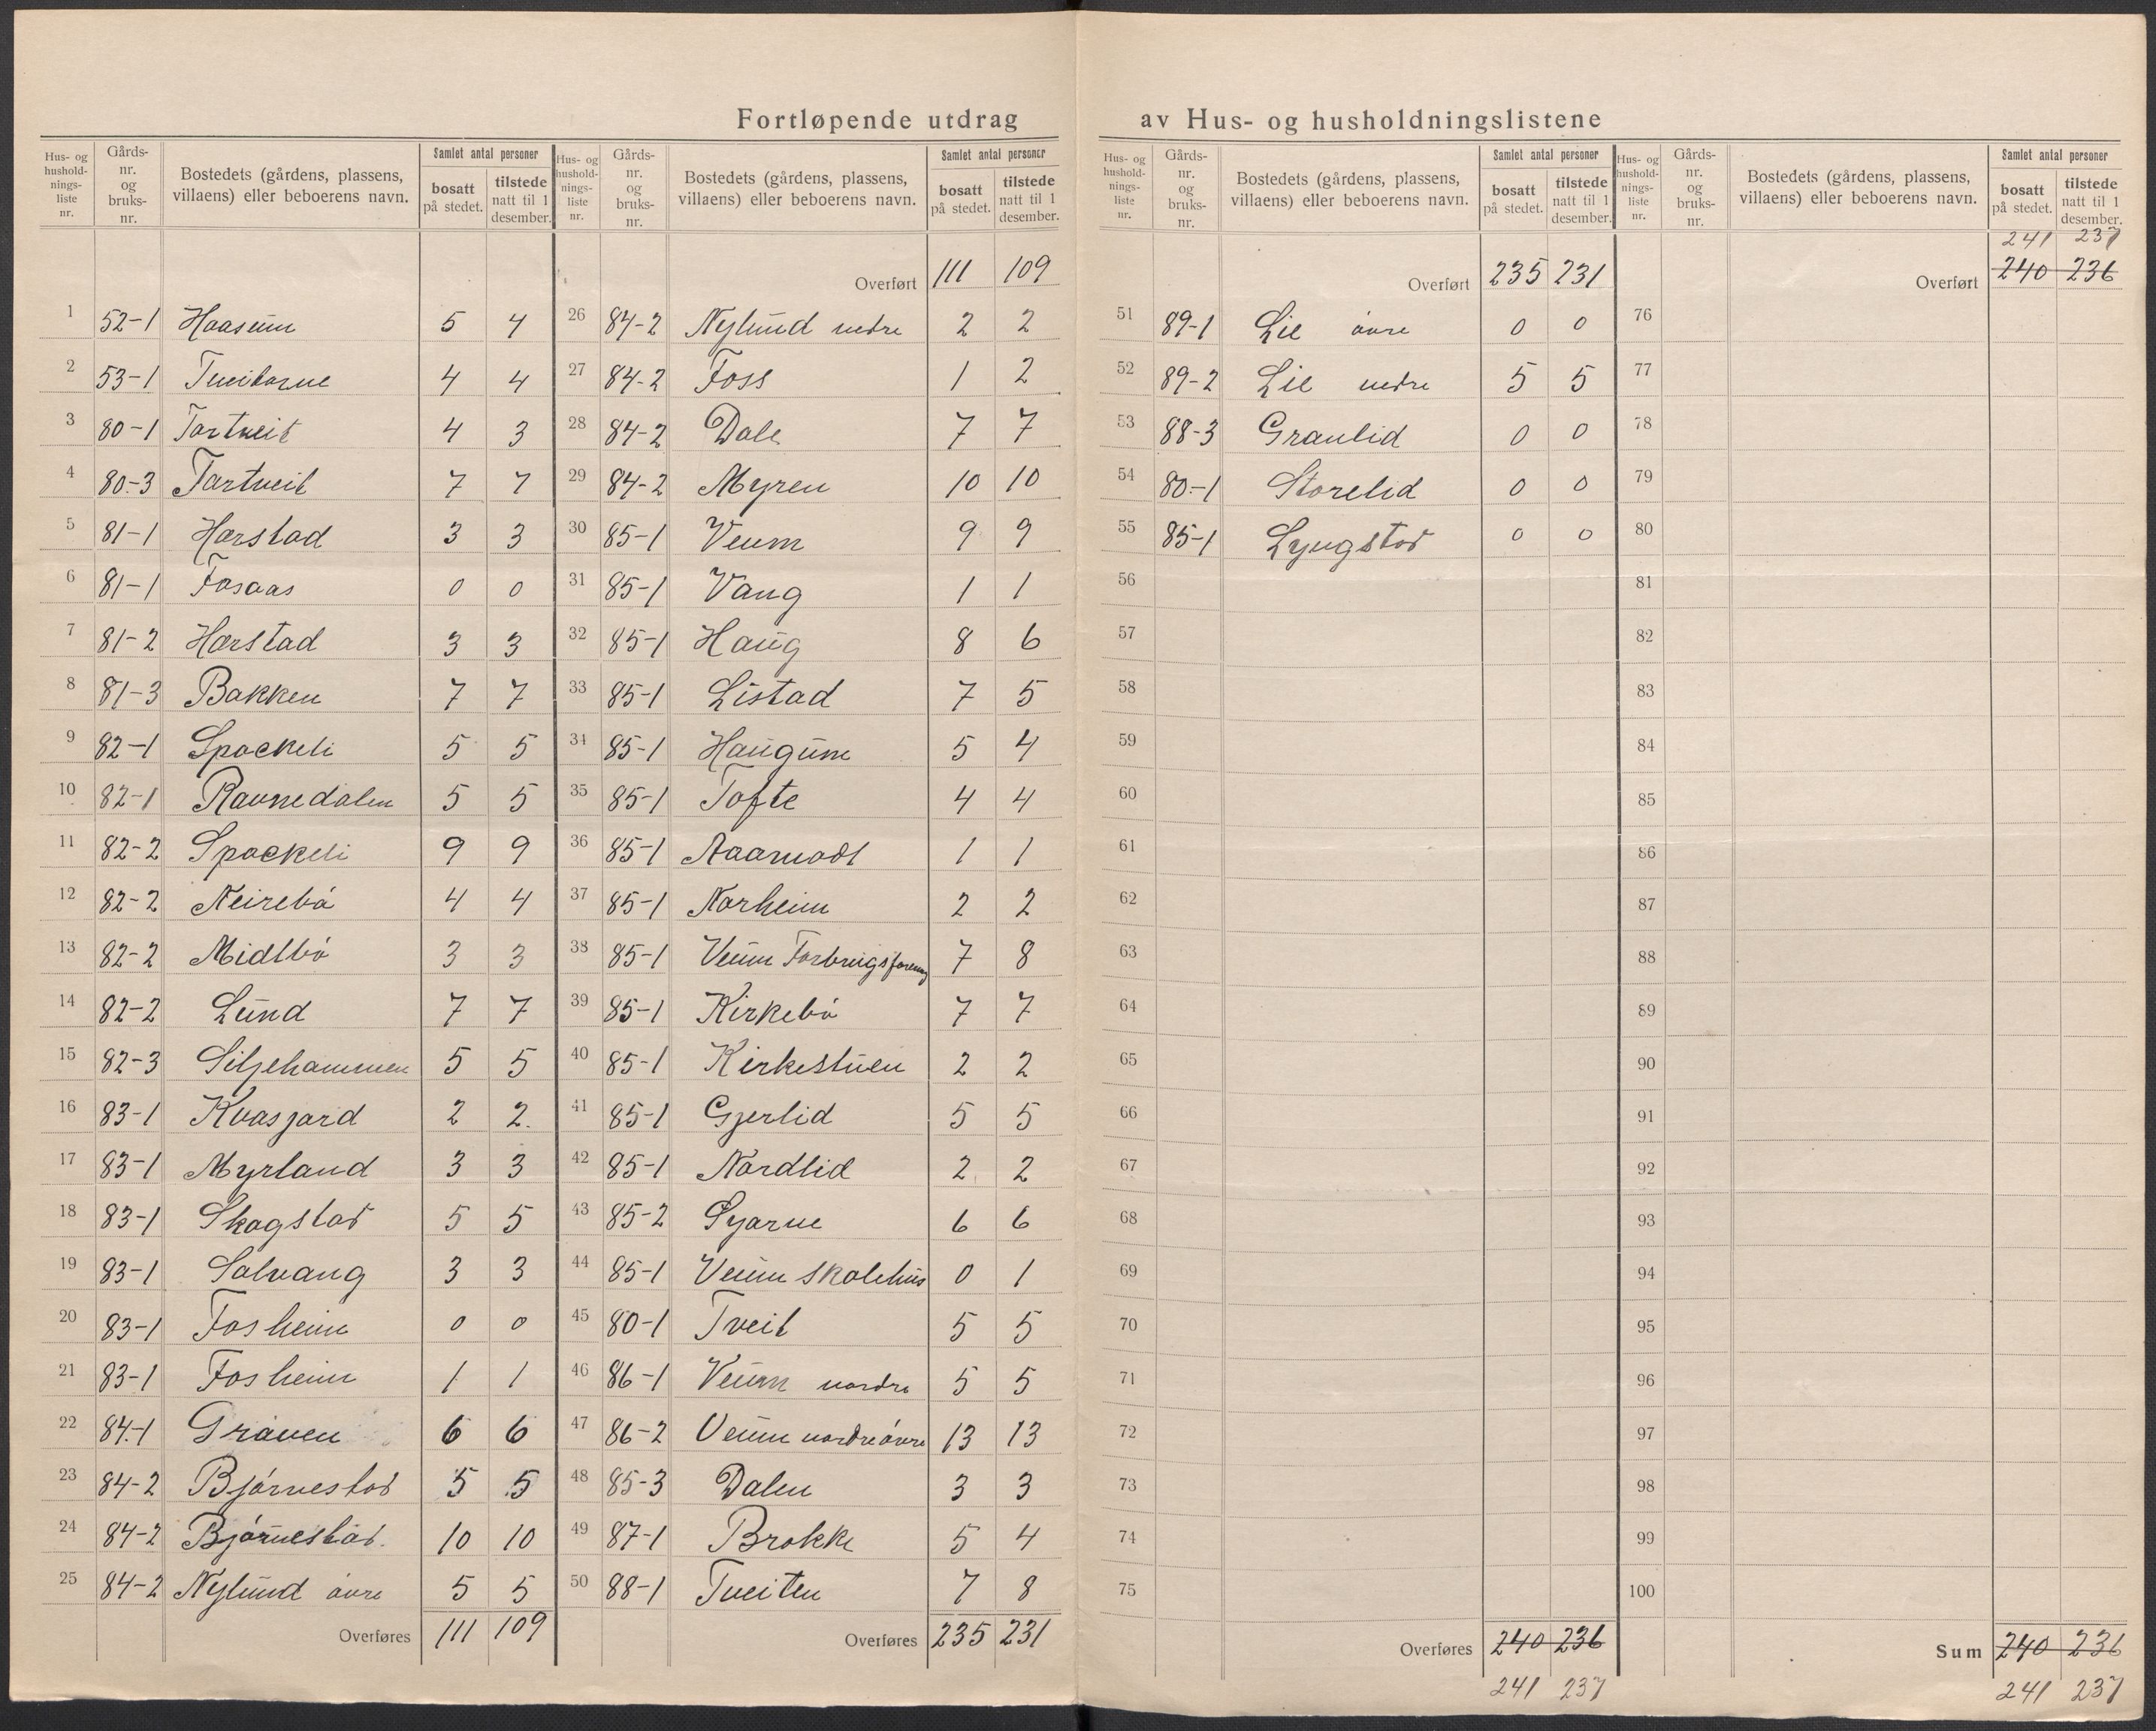 Fortløpende utdrag av Hus- og husholdningslistene
Hus- og hushold- nings- liste nr. | Gårds- nr. og bruks- nr. | Bostedets (gårdens, plassens, villaens) eller beboerens navn. | Samlet antal personer | bosatt på stedet. | tilstede natt til 1 desember.
1 52-1 Haasum 5 4
2 53-1 Tveitarne 4 4
3 80-1 Tartveit 4 3
4 80-3 Tartveit 7 7
5 81-1 Harstad 3 3
6 81-1 Fosaas 0 0
7 81-2 Harstad 3 3
8 81-3 Bakken 7 7
9 82-1 Spockeli 5 5
10 82-1 Ravnedalen 5 5
11 82-2 Spockeli 9 9
12 82-2 Neirebø 4 4
13 82-2 Midtbø 3 3
14 82-2 Lund 7 7
15 82-3 Siljehammen 5 5
16 83-1 Kvasjard 2 2
17 83-1 Myrland 3 3
18 83-1 Skogstad 5 5
19 83-1 Solvang 3 3
20 83-1 Fosheim 0 0
21 83-1 Fosheim 1 1
22 84-1 Grøven 6 6
23 84-2 Bjørnestad 5 5
24 84-2 Bjørnestad 10 10
25 84-2 Nylund øvre 5 5
Overføres 111 109
Hus- og hushold- nings- liste nr. | Gårds- nr. og bruks- nr. | Bostedets (gårdens, plassens, villaens) eller beboerens navn. | Samlet antal personer | bosatt på stedet. | tilstede natt til 1 desember.
Overført 111 109
26 84-2 Nylund nedre 2 2
27 84-2 Foss 1 2
28 84-2 Dale 7 7
29 84-2 Myren 10 10
30 85-1 Veum 9 9
31 85-1 Vang 1 1
32 85-1 Haug 8 6
33 85-1 Listad 7 5
34 85-1 Haugum 5 4
35 85-1 Tofte 4 4
36 85-1 Aaamodt 1 1
37 85-1 Norheim 2 2
38 85-1 Veum Forbrugsforening 7 8
39 85-1 Kirkebø 7 7
40 85-1 Kirkestuen 2 2
41 85-1 Gjerlid 5 5
42 85-1 Nordlid 2 2
43 85-2 6 6
44 85-1 Veum skolehus 0 1
45 80-1 Tveit 5 5
46 86-1 Veum nordre 5 5
47 86-2 Veum nordre øvre 13 13
48 85-3 Dalen 3 3
49 87-1 Brokke 5 4
50 88-1 Tveiten 7 8
Overføres 235 231
Hus- og hushold- nings- liste nr. | Gårds- nr. og bruks- nr. | Bostedets (gårdens, plassens, villaens) eller beboerens navn. | Samlet antal personer | bosatt på stedet. | tilstede natt til 1 desember.
Overført 235 231
51 89-1 Lie øvre 0 0
52 89-2 Lie nedre 5 5
53 88-3 Granlid 0 0
54 80-1 Storelid 0 0
55 85-1 Lyngstad 0 0
56
57
58
59
60
61
62
63
64
65
66
67
68
69
70
71
72
73
74
75
Overføres 240 236
241 237
Hus- og hushold- nings- liste nr. | Gårds- nr. og bruks- nr. | Bostedets (gårdens, plassens, villaens) eller beboerens navn. | Samlet antal personer | bosatt på stedet. | tilstede natt til 1 desember.
241 237
Overført 240 236
76
77
78
79
80
81
82
83
84
85
86
87
88
89
90
91
92
93
94
95
96
97
98
99
100
Sum 240 236
241 237